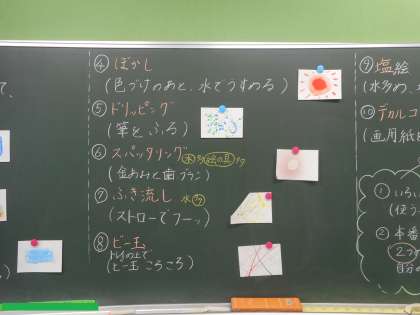 て、
④ ぼかし
(色づけのあと、水でうすめる)
⑤ ドリッピング
(筆をふる)
⑥ スパッタリング 水多 絵の具
(金あみと歯ブラシ)
⑦ ふき流し 水多
(ストローでフーッ)
⑧ ビー玉
トレイの上で
(ビー玉ころころ)
⑨ 塩絵
(水多め、
⑩ デカルコ
(画用紙
① いろい
(使う
② 本番
自分